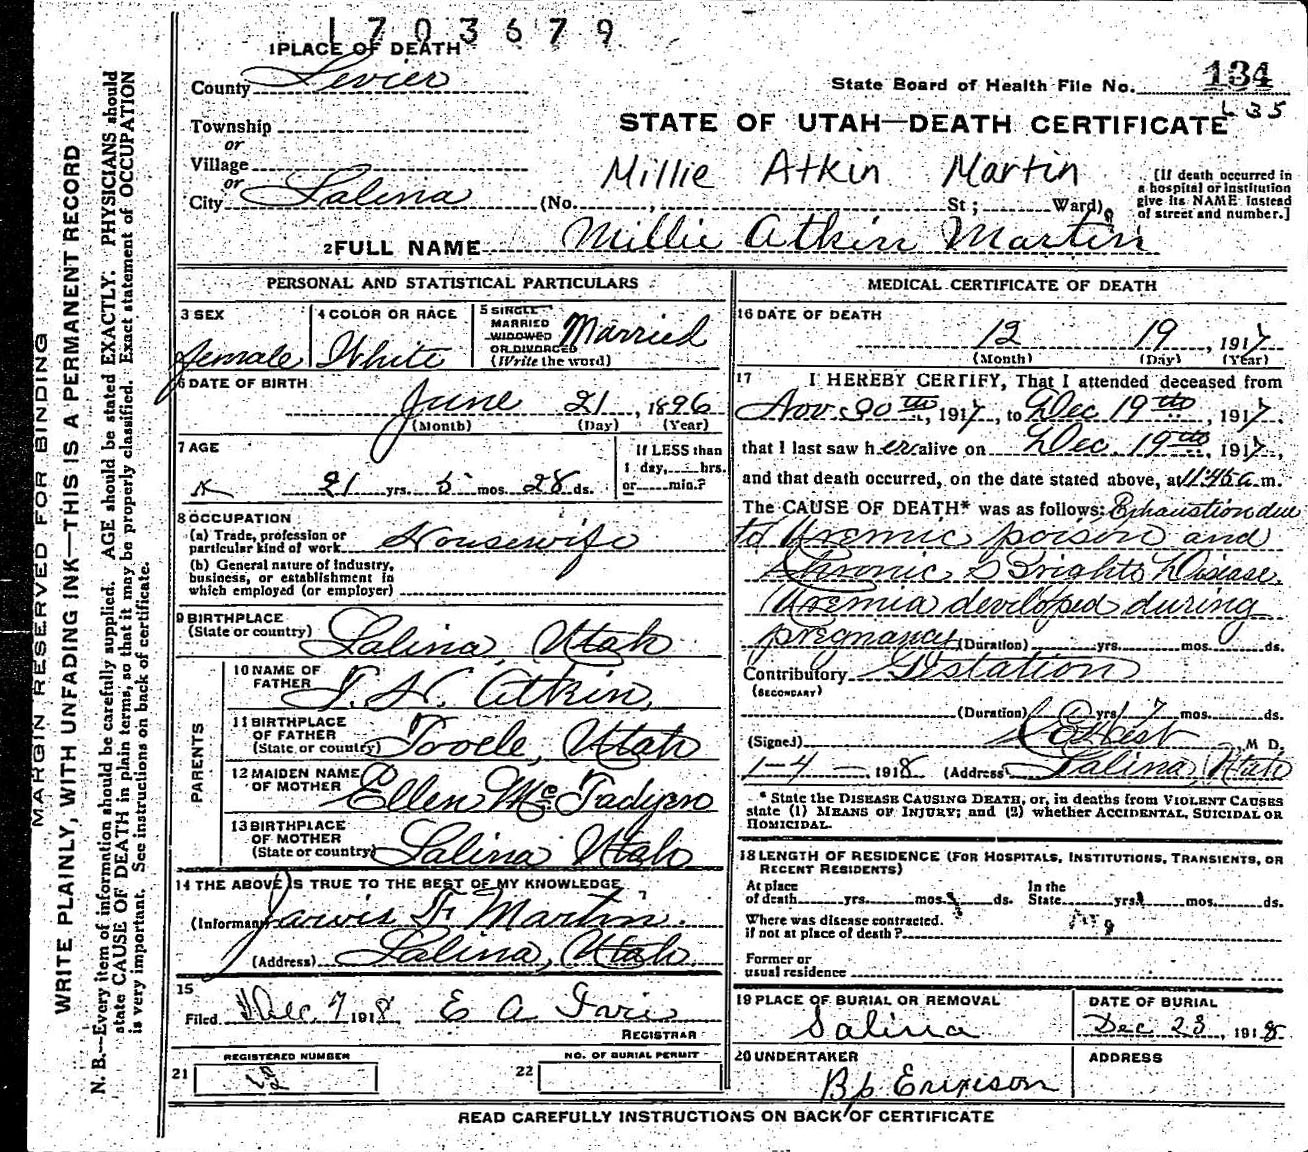 1703679
1 PLACE OF DEATH
County Sevier
State Board of Health File No. 134
L 35
Township
or
STATE OF UTAH—DEATH CERTIFICATE
Village
or
Millie Atkin Martin
City Salina (No. , St ; Ward)
[If death occurred in
a hospital or institution
give its NAME instead
of street and number.]
2 FULL NAME Millie Atkin Martin
PERSONAL AND STATISTICAL PARTICULARS
3 SEX
female
4 COLOR OR RACE
White
5 SINGLE
MARRIED
WIDOWED
OR DIVORCED
(Write the word)
Married
6 DATE OF BIRTH
June 21, 1896
(Month) (Day) (Year)
7 AGE
21 yrs. 5 mos. 28 ds.
If LESS than
1 day, hrs.
or min.?
8 OCCUPATION
(a) Trade, profession or
particular kind of work Housewife
(b) General nature of industry,
business, or establishment in
which employed (or employer)
9 BIRTHPLACE
(State or country) Salina, Utah
PARENTS
10 NAME OF
FATHER Atkin
11 BIRTHPLACE
OF FATHER
(State or country) Tooele, Utah
12 MAIDEN NAME
OF MOTHER Ellen
13 BIRTHPLACE
OF MOTHER
(State or country) Salina Utah
14 THE ABOVE IS TRUE TO THE BEST OF MY KNOWLEDGE
(Informant) Jarvis F. Martin.
(Address) Salina, Utah
15
Filed 7 1918 E A
REGISTRAR
REGISTERED NUMBER
21
NO. OF BURIAL PERMIT
22
MEDICAL CERTIFICATE OF DEATH
16 DATE OF DEATH
12 19, 1917
(Month) (Day) (Year)
17 I HEREBY CERTIFY, That I attended deceased from
Nov. th, 1917, to Dec 19th, 1917
that I last saw her alive on Dec. 19th, 1917,
and that death occurred, on the date stated above, at 11:45 a.m.
The CAUSE OF DEATH* was as follows: Exhaustion due
to Uremic poison and
Chronic Brights Disease.
Uremia developed during
pregnancy (Duration) yrs. mos. ds.
Contributory Gestation
(SECONDARY)
(Duration) yrs 7 mos. ds.
(Signed) West, M D.
1-4-1918 (Address) Salina, Utah
* State the DISEASE CAUSING DEATH, or, in deaths from VIOLENT CAUSES
state (1) MEANS OF INJURY; and (2) whether ACCIDENTAL, SUICIDAL OR
HOMICIDAL.
18 LENGTH OF RESIDENCE (FOR HOSPITALS, INSTITUTIONS, TRANSIENTS, OR
RECENT RESIDENTS)
At place
of death yrs. mos. ds.
In the
State yrs. mos. ds.
Where was disease contracted.
if not at place of death ?
Former or
usual residence
19 PLACE OF BURIAL OR REMOVAL
Salina
DATE OF BURIAL
Dec 23, 1918
20 UNDERTAKER
Bp Erickson
ADDRESS
READ CAREFULLY INSTRUCTIONS ON BACK OF CERTIFICATE
MARGIN RESERVED FOR BINDING
WRITE PLAINLY, WITH UNFADING INK—THIS IS A PERMANENT RECORD
N. B.—Every item of information should be carefully supplied. AGE should be stated EXACTLY. PHYSICIANS should
state CAUSE OF DEATH in plain terms, so that it may be properly classified. Exact statement of OCCUPATION
is very important. See instructions on back of certificate.